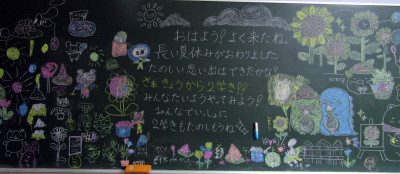 おはよう!よく来たね。
長い夏休みがおわりました。
たのしい思い出はできたかな?
さぁきょうから2学き!!
みんなたいようやってみよう!
みんなでいっしょに
2学きもたのしもうね